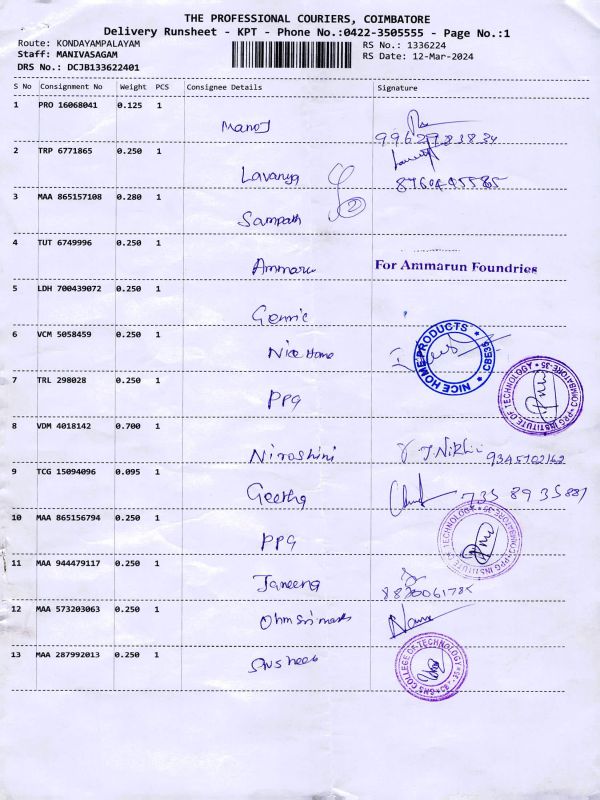 THE PROFESSIONAL COURIERS, COIMBATORE
Delivery Runsheet - KPT - Phone No.:0422-3505555 - Page No.:1
Route: KONDAYAMPALAYAM
Staff: MANIVASAGAM
DRS No.: DCJB133622401
RS No.: 1336224
RS Date: 12-Mar-2024
S No Consignment No Weight PCS Consignee Details Signature
1 PRO 16068041 0.125 1 Manoj
9962983834
2 TRP 6771865 0.250 1 Lavanya
3 MAA 865157108 0.280 1 Sampath 2
4 TUT 6749996 0.250 1 Ammarun For Ammarun Foundries
5 LDH 700439072 0.250 1
6 VCM 5058459 0.250 1 Nice Home NICE HOME PRODUCTS * CBE35 *
7 TRL 298028 0.250 1 PPG PPG INSTITUTE OF TECHNOLOGY * COIMBATORE-35 *
8 VDM 4018142 0.700 1 Niroshini
9 TCG 15094096 0.095 1 Geetha
10 MAA 865156794 0.250 1 PPG PPG INSTITUTE OF TECHNOLOGY * COIMBATORE-35 *
11 MAA 944479117 0.250 1
12 MAA 573203063 0.250 1
13 MAA 287992013 0.250 1 SNS COLLEGE OF TECHNOLOGY